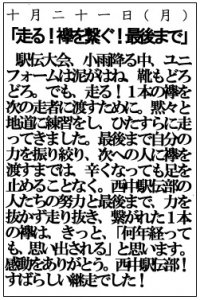 十月二十一日(月)
「走る!襷を繋ぐ!最後まで」
駅伝大会、小雨降る中、ユニ
フォームは泥がはね、靴もどろ
どろ。でも、走る!1本の襷を
次の走者に渡すために。黙々と
地道に練習をし、ひたすらに走
ってきました。最後まで自分の
力を振り絞り、次への人に襷を
渡すまでは、辛くなっても足を
止めることなく。西中駅伝部の
人たちの努力と最後まで、力を
抜かず走り抜き、繋がれた1本
の襷は、きっと、「何年経って
も、思い出される」と思います。
感動をありがとう。西中駅伝部!
すばらしい継走でした!